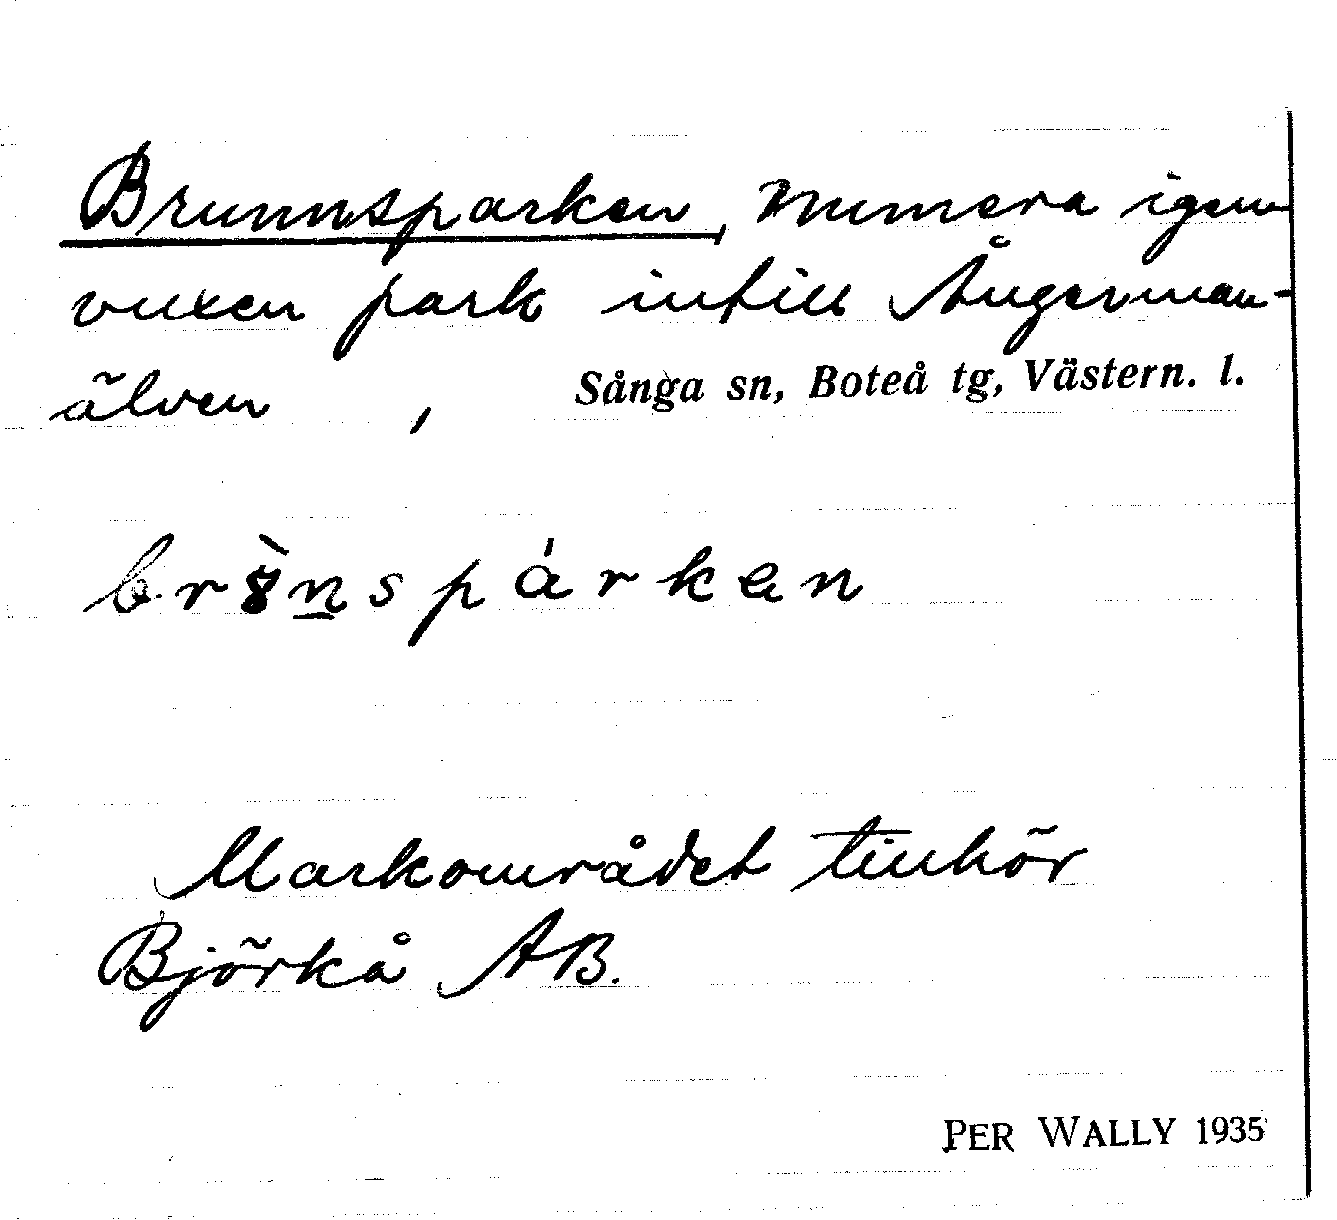 Brunnsparken, numera igen-
vuxen park intill Ångerman-
älven, Sånga sn, Boteå tg, Västern. l.
brȣ̀nspárken
Markområdet tillhör
Björkå AB.
PER WALLY 1935